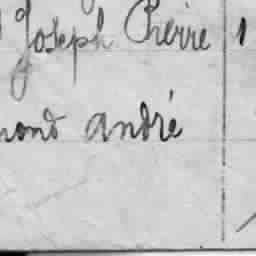 Joseph Pierre 1
mond andré